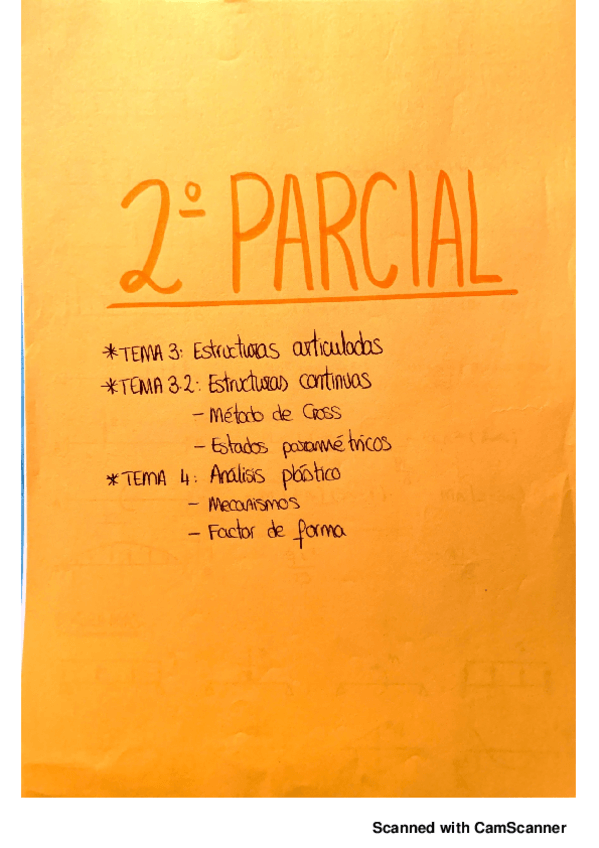 2º PARCIAL
*TEMA 3: Estructuras articuladas
*TEMA 3.2: Estructuras continuas
- Método de Cross
- Estados paramétricos
*TEMA 4: Análisis plástico
- Mecanismos
- Factor de forma
Scanned with CamScanner